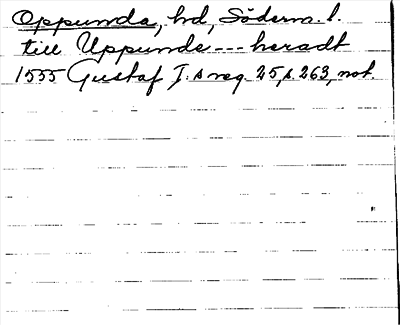 Oppunda, hd, Söderm. l.
till Uppunde --- heradt
1555 Gustaf I:s reg. 25, s. 263, not.